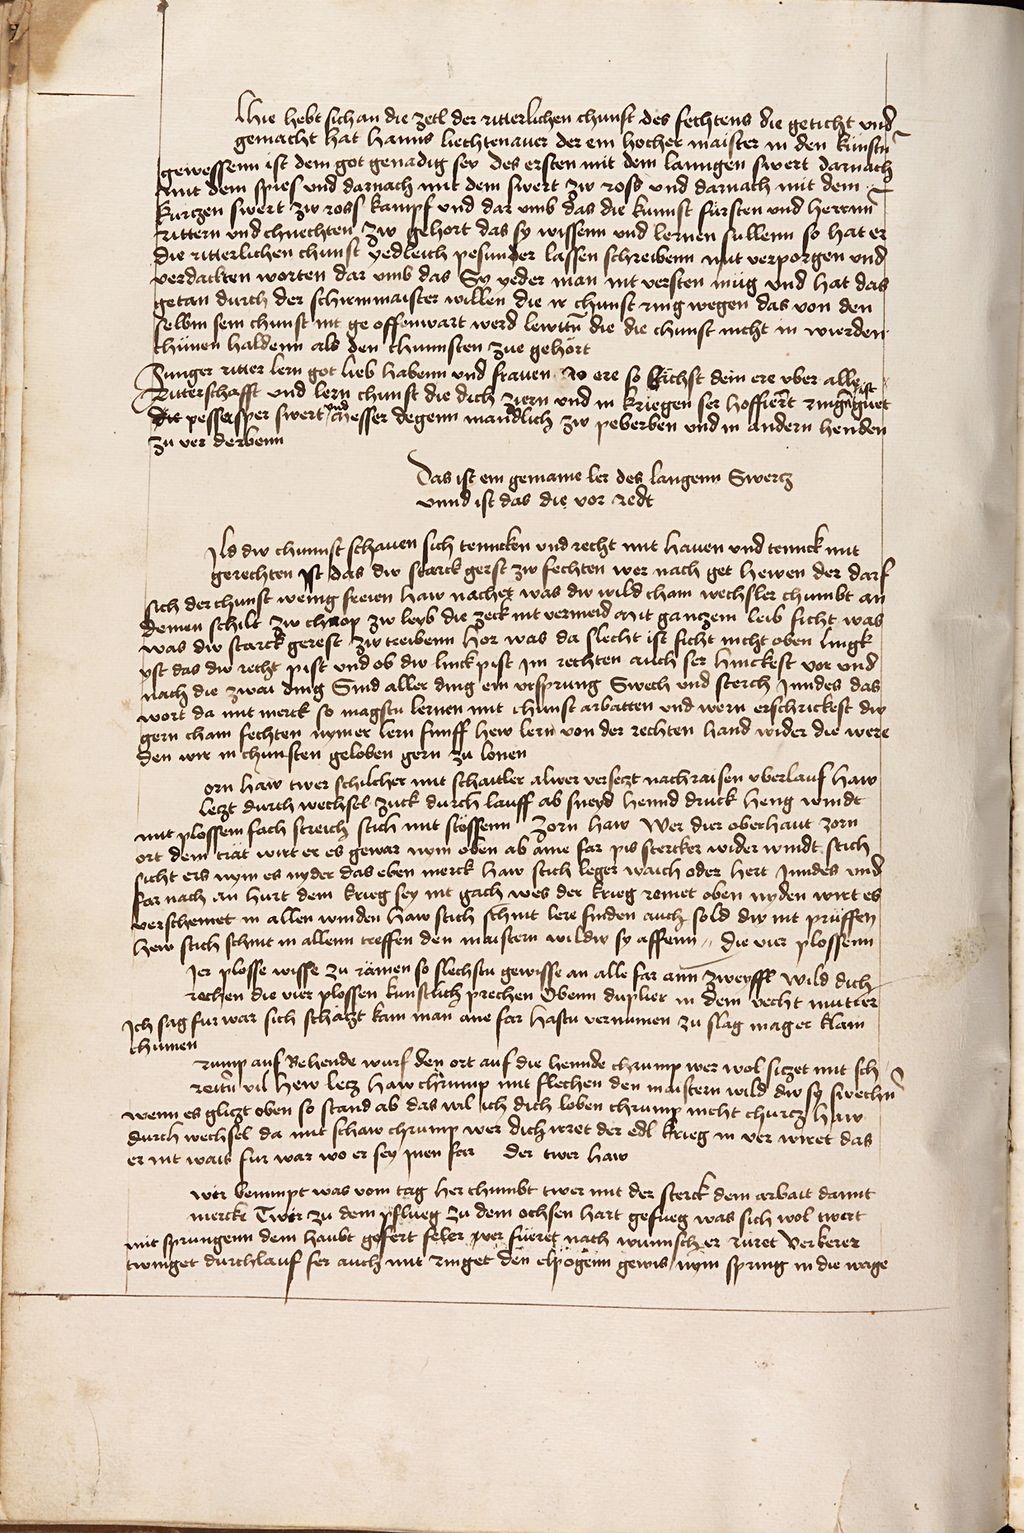 Hie hebt sich an die zetl der ritterlichen chunst des fechtens die geticht vnd
gemacht hat Hanns liechtenauer der ein hocher maister in den künstn̄
gewessenn ist dem got genadig sey des ersten mit dem lanngen swert darnach
mit dem spies vnd darnach mit dem swert zw ross vnd darnach mit dem
kurczen swert zw ross kampf vnd dar vmb das die kunnst fürsten vnd herrnn̄
rittern vnd chnechten zw gehort das sy wissenn vnd lernen sullenn so hat er
die ritterlichen chunst yedleich pesunder lassen schreibenn mit verporgen vnd
verdackten worten dar vmb das Sy yeder man nit versten müg vnd hat das
getan durch der schirmmaister willen die ir chunst ring wegen das von den
selbm sein chunst nit ge offenwart werd lewitn̄ die die chunst nicht in wierden
chünen haldenn als den chunnsten zue gehört
Junger ritter lern got lieb habenn vnd frauen Jo ere so bächst dein ere vber alle
Ritterschafft vnd lern chunst die dich ziern vnd in kriegen ser hoffiert ringn̄s ist guet
die pesser sper swert vnd messer degenn mandlich zw peberben vnd in andern henden
zu ver derbenn
Das ist ein gemaine ler des langenn Swertz
vnnd ist das die vor redt
Ild dw chunnst schauen sich tenncken vnd recht mit hauen vnd tennck mit
gerechten Ist das dw starck gerst zw fechten wer nach get hewen der darf
sich der chunst wenig freien haw nachet was dw wild cham wechsler chumbt an
deinen schilt zw chaop zw leyb die zeck nit vermeid mit ganczem leib ficht was
was dw starck gerest zw treibenn Hor was da slecht ist ficht nicht oben lingk
yst das dw recht pist vnd ob dw linck pist Im rechten auch ser hinckest vor vnd
nach die zwai ding Sind aller ding ein vrsprung Swech vnd sterch Inndes das
wort da mit merck so magstu lernen mit chunst arbatten vnd wern erschrickest dw
gern cham fechten nymer lern funff hew lern von der rechten hand wider die were
den wir in chunsten geloben gern zu lonen
orn haw twer schilcher mit schaitler alwer versetzt nachraisen vberlauf haw
letzt durch wechsel zuck durch lauff ab sneyd hennd druck heng windt
mit plossem fach streich stich mit stössenn Zorn haw Wer dier oberhaut zorn
ort dem trät wirt er es gewar nym oben ab ane far pis stercker wider windt stich
sicht ers nym es nyder das eben merck haw stich leger waich oder hert Inndes vnd
far nach an hurt dem krieg sey nit gach wes der krieg remet oben nyden wirt es
verschemet in allen winden haw stich schnit lere finden auch sold dw nit prüffen
hew stich schnit in allenn treffen den maistern wildw sy affenn die vier plossenn
Ier plosse wisse zu rämen so slechstu gewisse an alle far ann zweyffl wild dich
rechen die vier plossen kunstlich prechen Obenn duplier in dem recht mutier
Ich sag fur war sich schätzt kain man ane far hastu vernumen zu slag mag er klain
chumen
rump auf Behende wurf den ort auf die hennde chrump wer wol siczet mit sch
reitn̄ vil hew letz haw chrump mit flechen den maistern wild dw sy swechn̄
wenn es gliczt oben so stand ab das wil ich dich loben chrump nicht churcz haw
durch wechsel da mit schaw chrump wer dich irret der edl krieg in ver wiret das
er nit wais fur war wo er sey inen far der twer haw
wer benimpt was vom tag her chumbt twer mit der sterck dem arbait damit
merck Twer zu dem pflueg zu dem ochsen hart gefueg was sich wol twert
mit sprungenn dem haubt gefert feler wer füeret nach wunnsch er rüret Verkerer
twinget durchlauf fer auch mit ringet den elpogenn gewis nym spring in die wage